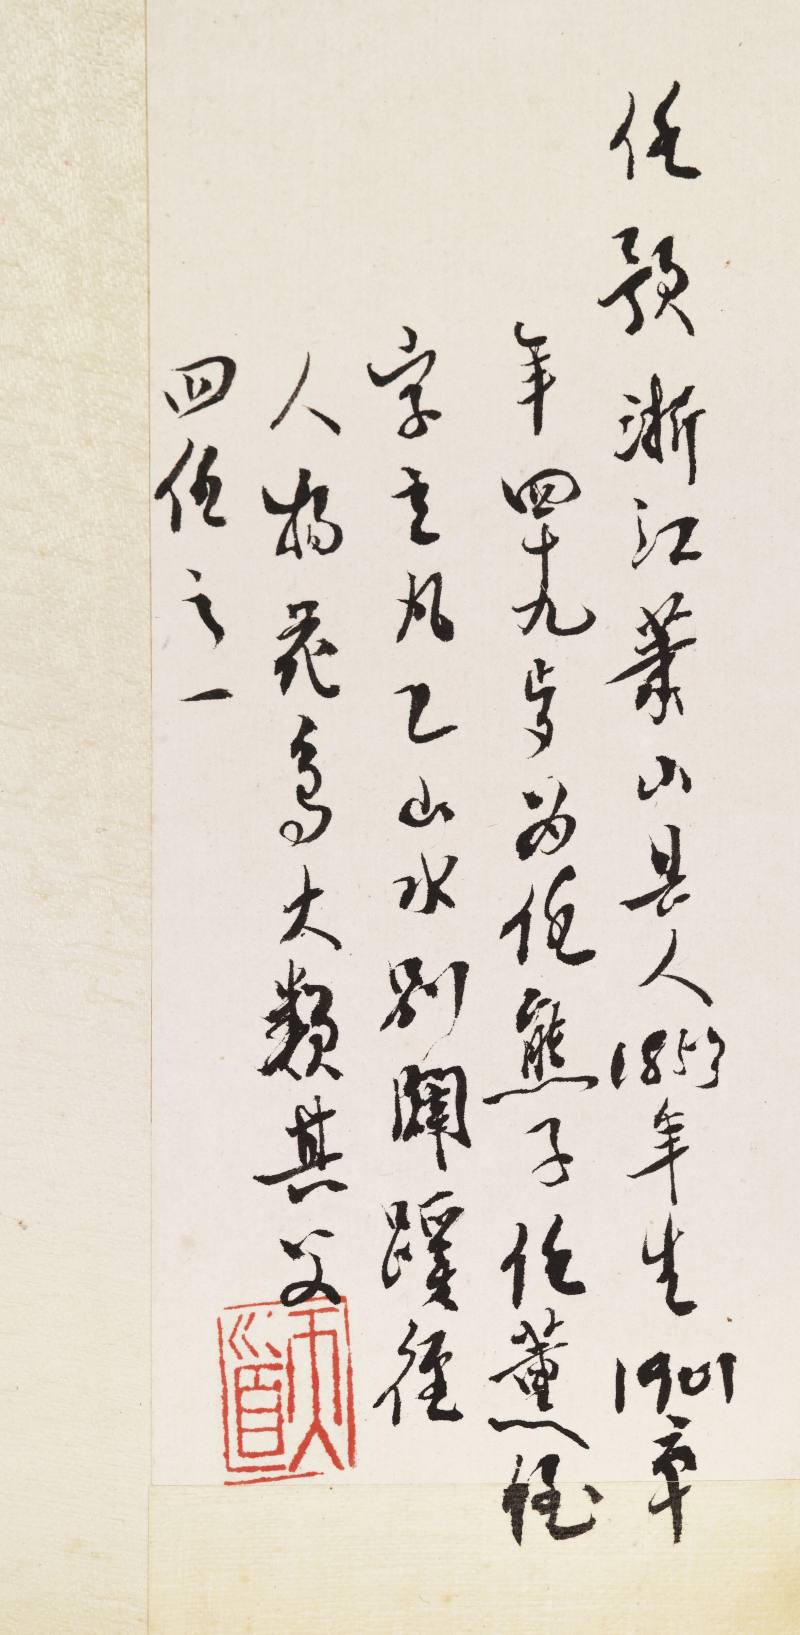 任預浙江蕭山县人1853年生1901卒
年四十九岁为任熊子任薰侄
字立凡工山水别闢蹊径
人物花鸟大類其父
四任之一